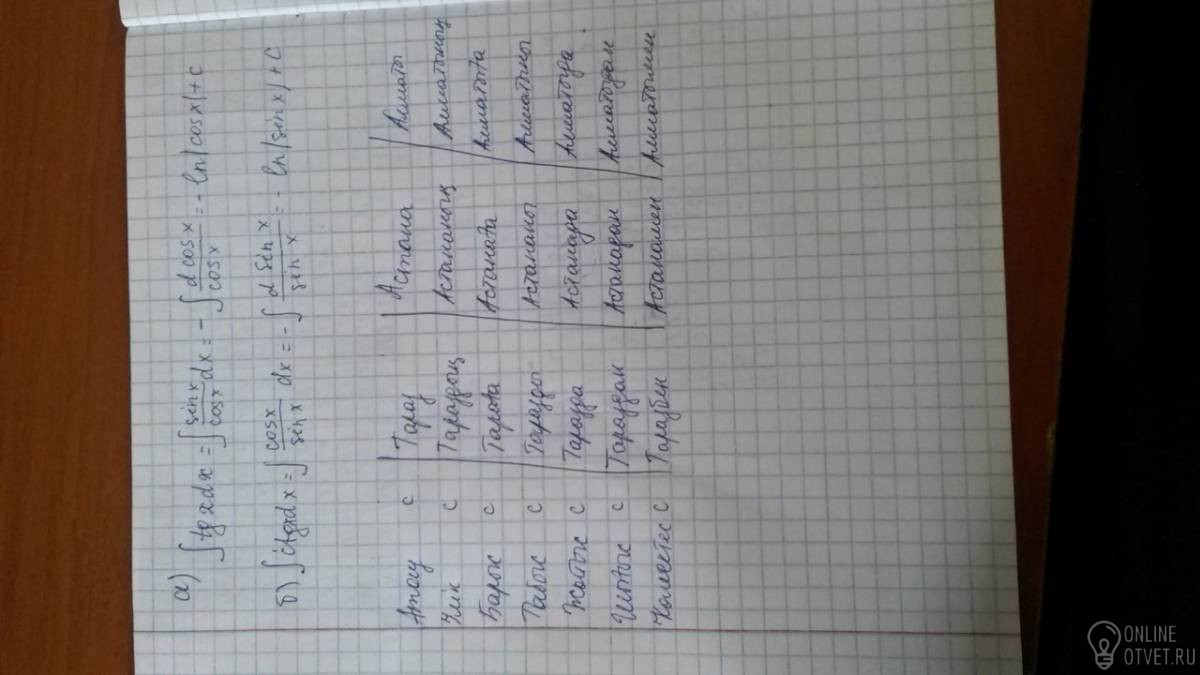 а) ∫ tg x dx = ∫ sin x / cos x dx = - ∫ d cos x / cos x = - ln |cos x| + C
б) ∫ ctg x dx = ∫ cos x / sin x dx = - ∫ d sin x / sin x = - ln |sin x| + C
Атау с | Тараз | Астана | Алматы
Ілік с | Тараздың | Астананың | Алматының
Барыс с | Таразға | Астанаға | Алматыға
Табыс с | Таразды | Астананы | Алматыны
Жатыс с | Таразда | Астанада | Алматыда
Шығыс с | Тараздан | Астанадан | Алматыдан
Көмектес с | Таразбен | Астанамен | Алматымен
ONLINE
OTVET.RU